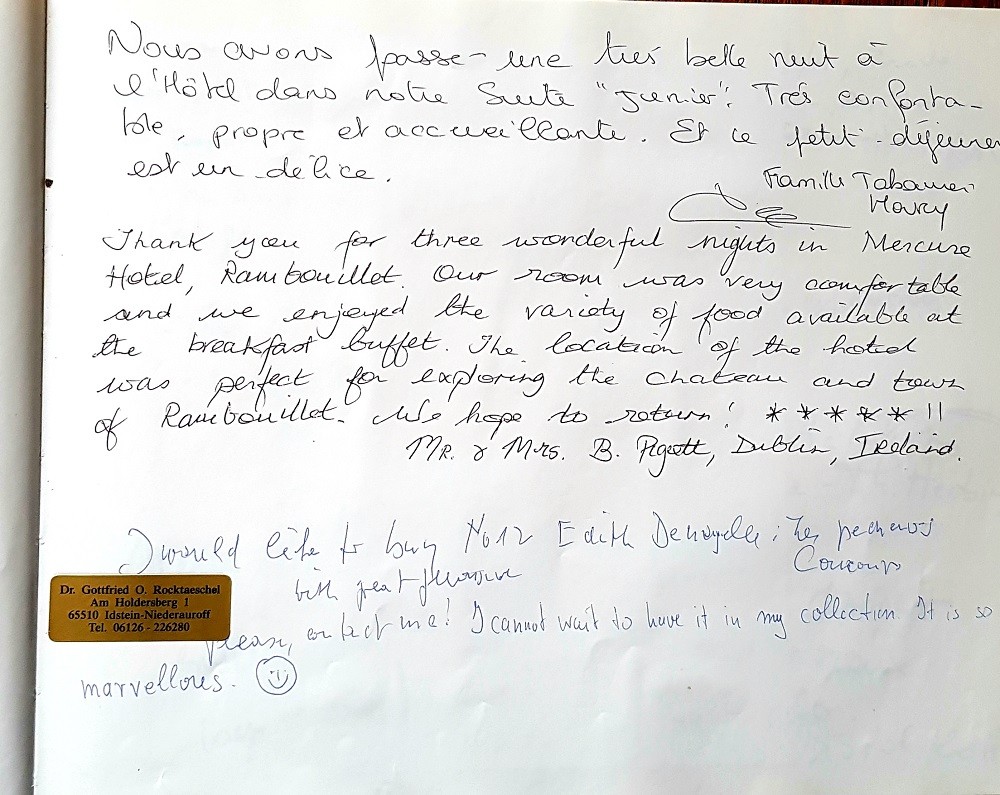 Nous avons passé une très belle nuit à
l'Hôtel dans notre Suite "Junior". Très conforta-
ble, propre et accueillante. Et le petit-déjeuner
est un délice.
Famille
Thank you for three wonderful nights in Mercure
Hotel, Rambouillet. Our room was very comfortable
and we enjoyed the variety of food available at
the breakfast buffet. The location of the hotel
was perfect for exploring the chateau and town
of Rambouillet. We hope to return! * * * * * !!
Mr. & Mrs. B. Pigott, Dublin, Ireland.
I would like to buy No 12 Edith
with great pleasure
Dr. Gottfried O. Rocktaeschel
Am Holdersberg 1
65510 Idstein-Niederauroff
Tel. 06126 - 226280
please, contact me! I cannot wait to have it in my collection. It is so
marvellous.